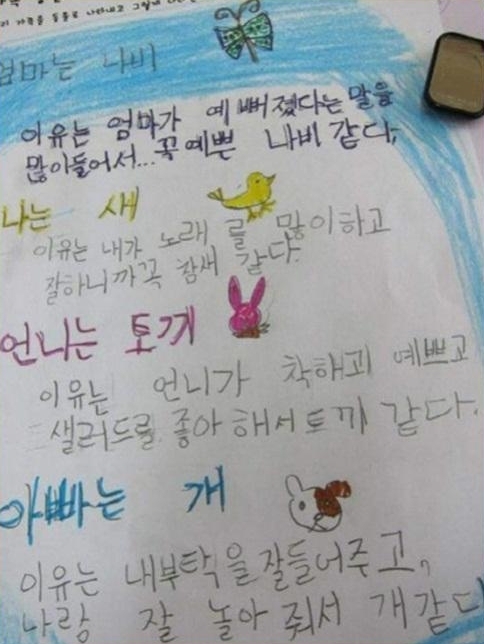 가족을 동물로 나타내고 그렇게
엄마는 나비
이유는 엄마가 예뻐졌다는 말을
많이들어서... 꼭 예쁜 나비 같다,
나는 새
이유는 내가 노래를 많이하고
잘하니까꼭 참새 같다.
언니는 토끼
이유는 언니가 착해고 예쁘고
샐러드를 좋아해서토끼 같다.
아빠는 개
이유는 내부탁을잘들어주고,
나랑 잘 놀아 줘서 개같다